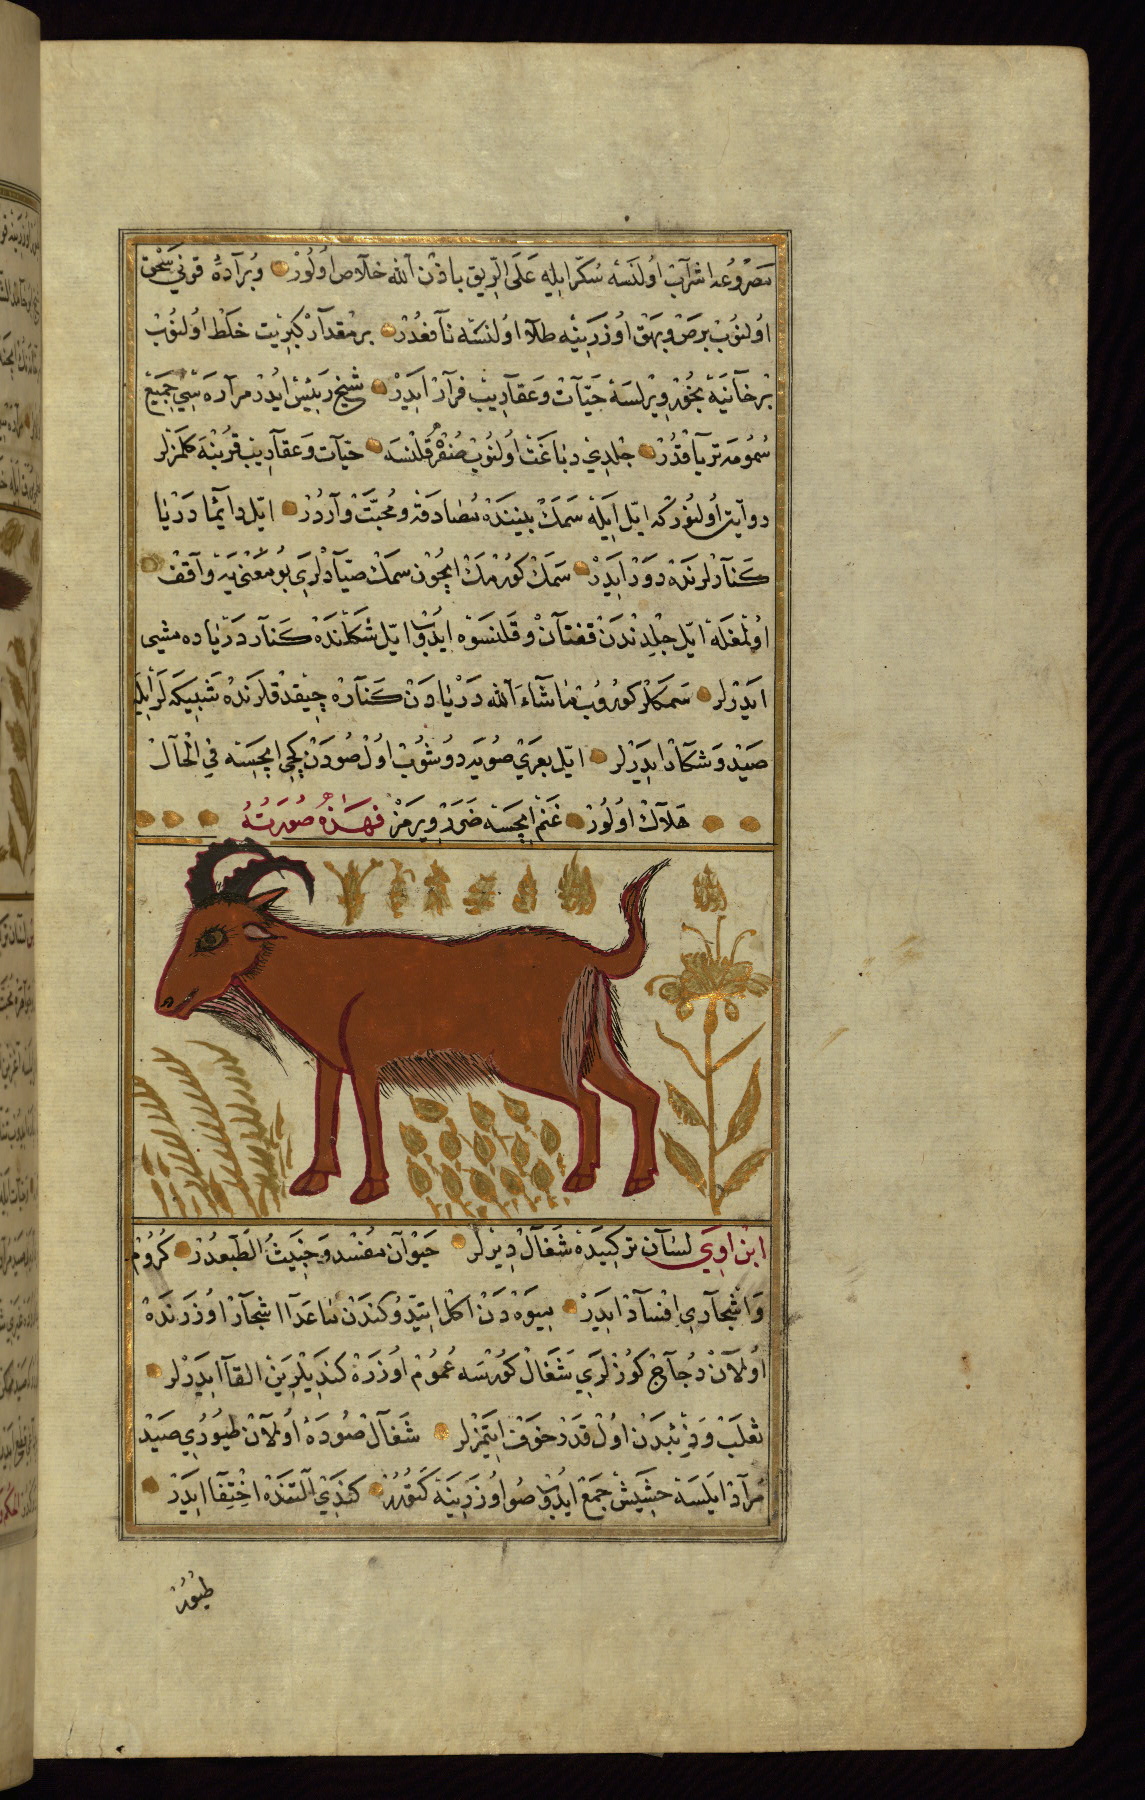 مصروعه اشراب اولنسه سكر ايله على الريق باذن الله خلاص اولور وبراده قرني سحق
اولنوب برص وبهق اوزرينه طلا اولنسه نافعدر بر مقدار كبريت خلط اولنوب
بر خانيه بخور ويرلسه حيات وعقاريب فرار ايدر شيخ رئيس ايدر مراره سي جميع
سمومه ترياقدر جلدي دباغت اولنوب صفره قلنسه حيات وعقاريب قربنه كلمزلر
روايت اولنور كه ايل ايله سمك بيننده مصادقه ومحبت واردر ايل دائما دريا
كنارلرنده دور ايدر سمك كورمك ايچون سمك صيادلري بو معنى يه واقف
اولمغله ايل جلدندن قفتان وقلنسوه ايدوب ايل شكلنده كنار درياده مشي
ايدرلر سمكلر كوروب ما شاء الله دريادن كناره چيقدقلرنده شبيكه لر ايله
صيد وشكار ايدرلر ايل بعري صويه دوشوب اول صودن كچي ايچسه في الحال
هلاك اولور غنم ايچسه ضرر ويرمز فهذه صورته
ابن اوي لسان تركيده شغال ديرلر حيوان مفسد وخبيث الطبعدر كروم
واشجاري افساد ايدر ميوه دن اكل ايتدوكندن ماعدا اشجار اوزرنده
اولان دجاج كوزلري شغال كورسه عموم اوزره كنديلرين القا ايدرلر
ثعلب وذئبدن اول قدر خوف ايتمزلر شغال صوده اولان طيوري صيد
مراد ايلسه حشيش جمع ايدوب صو اوزرينه كتورر كندي التنده اختفا ايدر
طيور